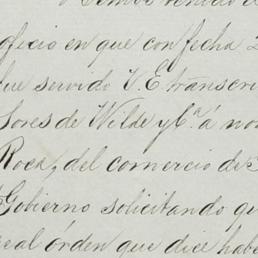 hemos venido d
oficio en que con fecha 2
que servido V.E. transcri
Sores de Wilde y Cª. á nom
Roca, del comercio de
Gobierno solicitando qu
real órden que dice habe